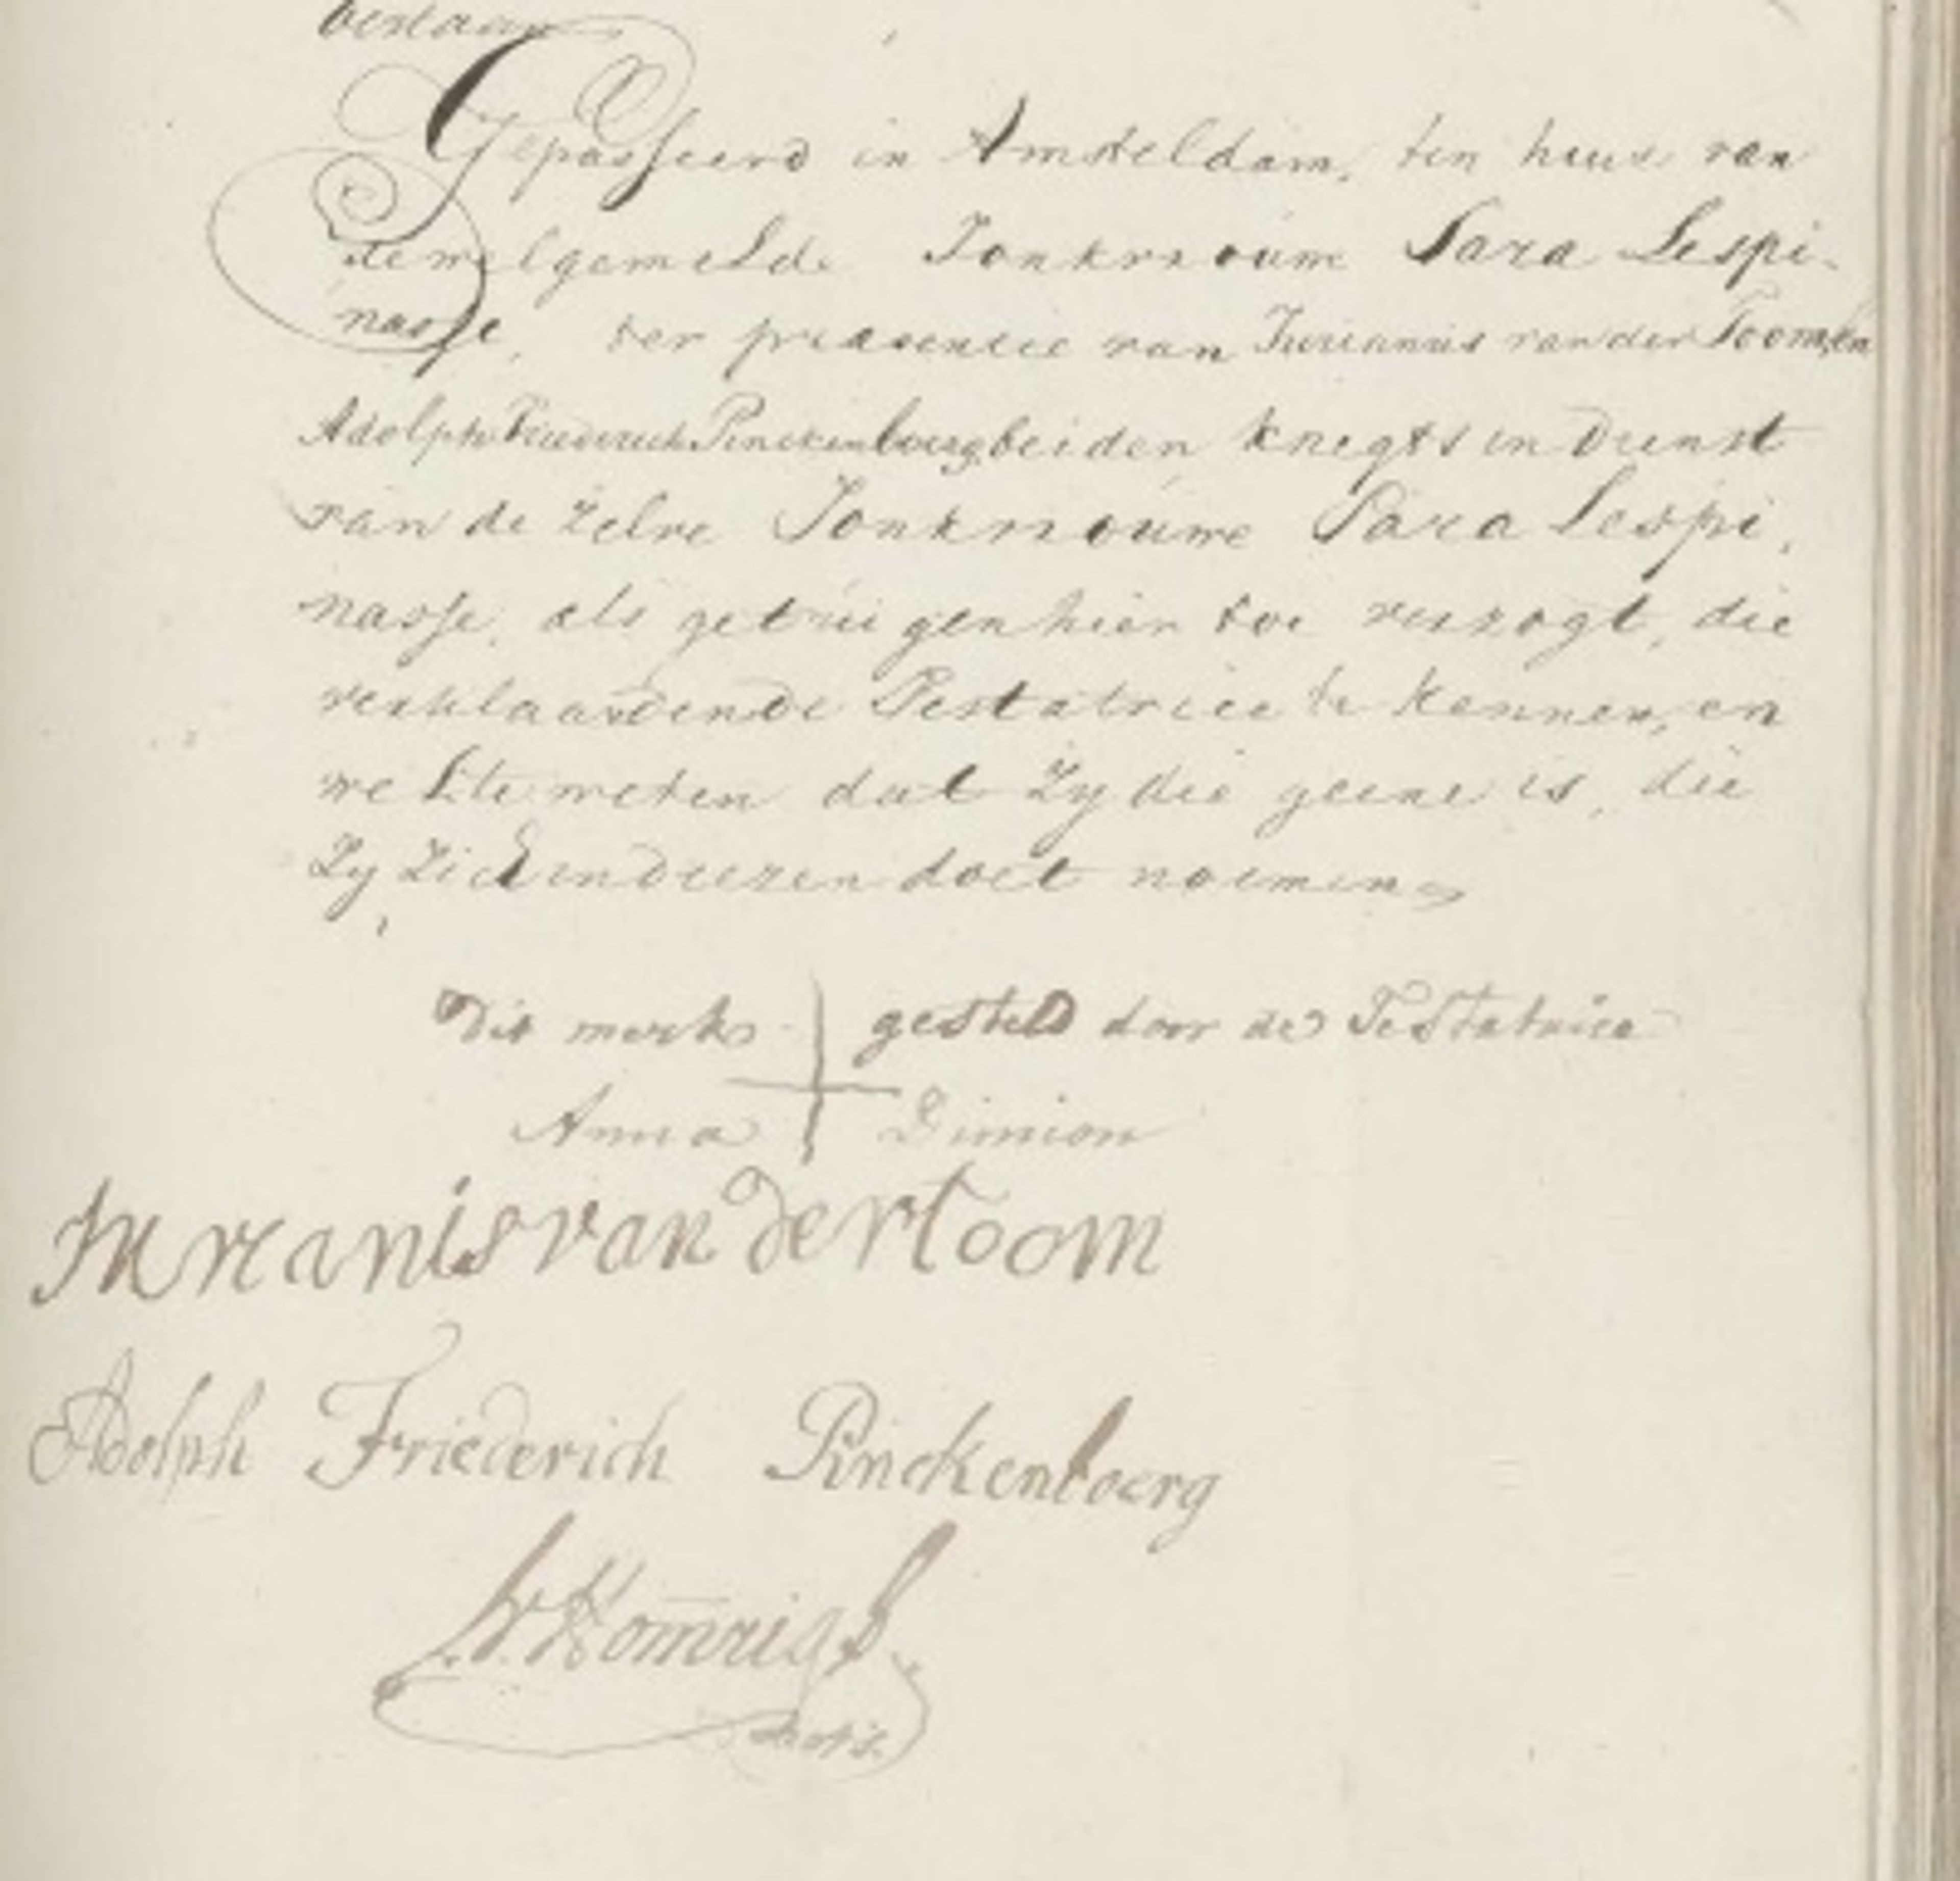 bestaan
Gepasseerd in Amsteldam, ten huise van
de welgemelde Jonkvrouwe Sara Lespi-
nasse, ter præsentie van Jurianius van der Toom, en
Adolph Friederich Pinckenboerg beiden knegts in dienst
van de zelve Jonkvrouwe Sara Lespi,
nasse, als getuigen hier toe verzogt, die
verklaarden de Testatrice te kennen, en
wel te weten dat zy die geene is, die
zy zich in deezen doet noemen
Dit merk gesteld door de Testatrice
Anna Dimion
Jurianis van der toom
Adolph Friederich Pinckenboerg
Homrigh
Nots.